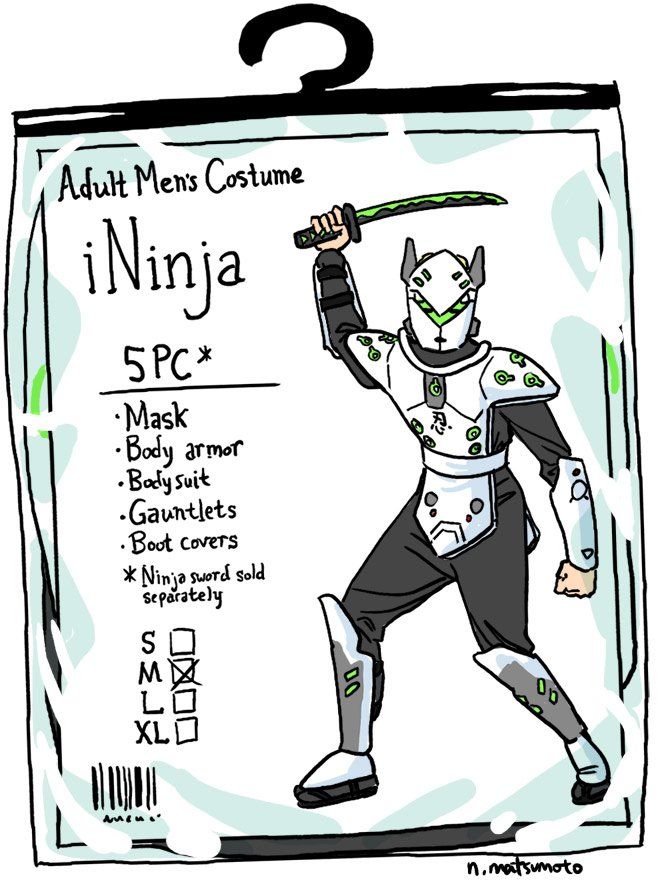 Adult Men's Costume
iNinja
5PC*
· Mask
· Body armor
· Bodysuit
· Gauntlets
· Boot covers
* Ninja sword sold
separately
S
M
L
XL
忍
n. matsumoto